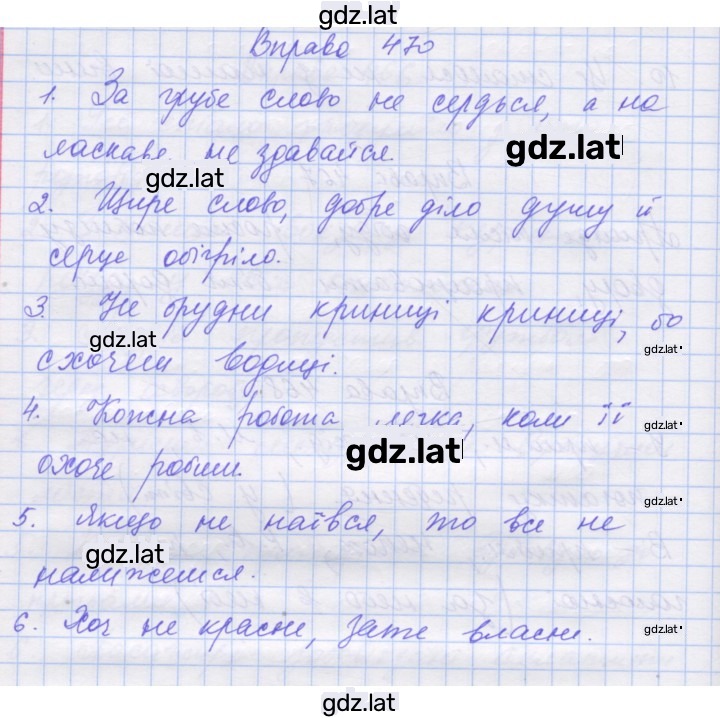 gdz.lat
Вправа 470
1. За грубе слово не сердься, а на
ласкаве не здавайся.
gdz.lat
gdz.lat
2. Щире слово, добре діло душу й
серце обігріло.
3. Не брудни криниці криниці, бо
gdz.lat
gdz.lat
схочеш водиці.
4. Кожна робота легка, коли її
gdz.lat
gdz.lat
охоче робиш.
gdz.lat
5. Якщо не наївся, то все не
gdz.lat
налижешся.
6. Хоч не красне, зате власне.
gdz.lat
gdz.lat